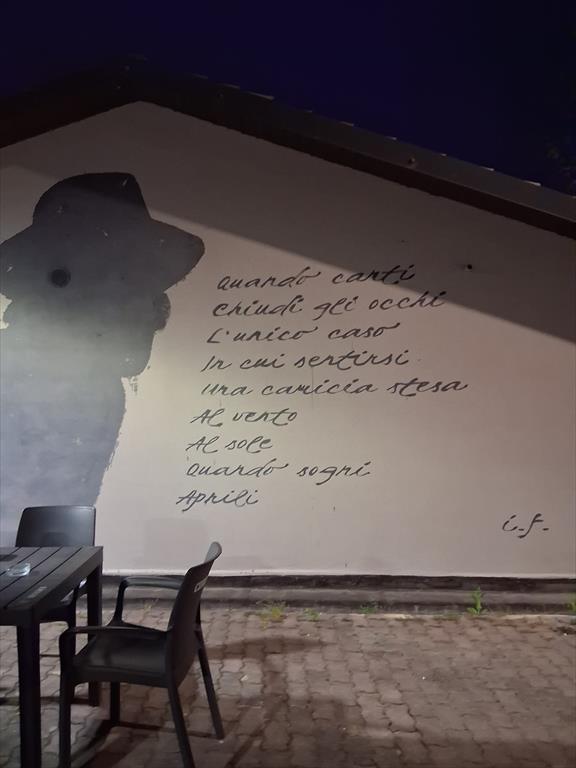 Quando canti
Chiudi gli occhi
L'unico caso
In cui sentirsi
Una camicia stesa
Al vento
Al sole
Quando sogni
Aprili
i.f.